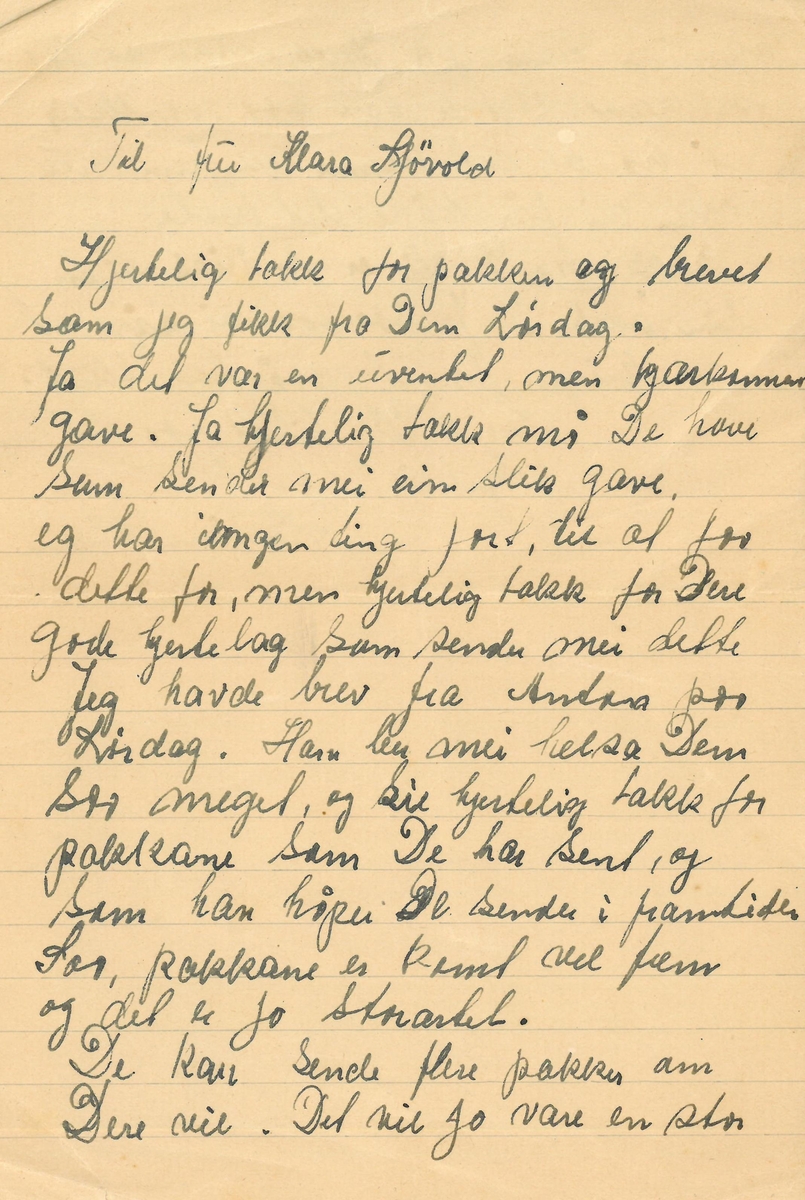 Til fru Klara Sjövold
Hjertelig takk for pakken og brevet
som jeg fikk fra Dem Lördag.
Ja det var en uventet, men kjærkommen
gave. Ja hjertelig takk må De have
som sender mei ein slik gave,
eg har ingen ting jort, til at faa
dette for, men hjertelig takk for Dere
gode hjertelag som sender mei dette
Jeg havde brev fra Anton paa
Lördag. Han ber mei helsa Dem
saa meget, og sie hjertelig takk for
pakkane som De har sent, og
som han håper De sender i framtiden
Saa, pakkane er komt vel fræm
og det er jo storartet.
De kan sende flere pakker om
Dere vil. Det vil jo være en stor